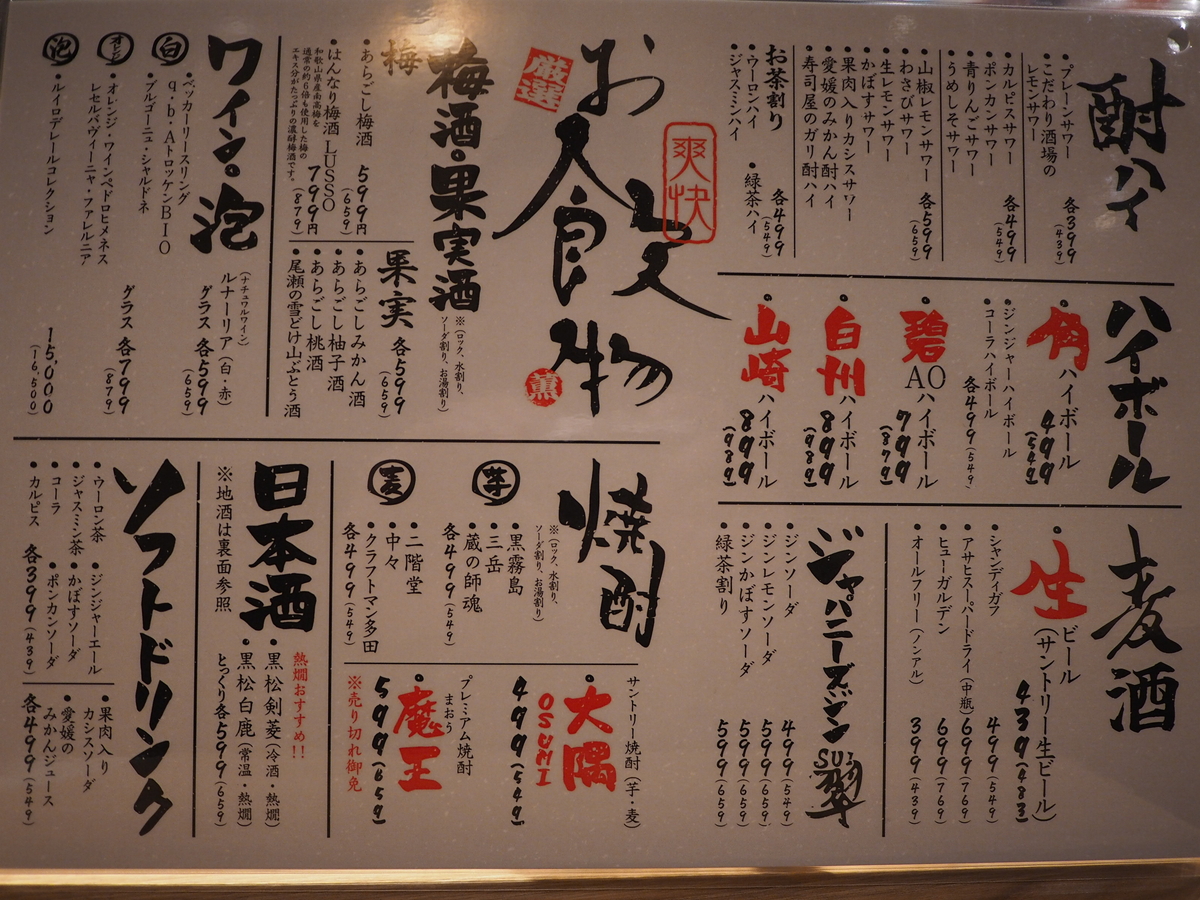 酎ハイ
・プレーンサワー
・こだわり酒場の
レモンサワー
各399
(439)
・カルピスサワー
・ポンカンサワー
・青りんごサワー
・うめしそサワー
各499
(549)
・山椒レモンサワー
・わさびサワー
・生レモンサワー
・かぼすサワー
・果肉入りカシスサワー
・愛媛のみかん酎ハイ
・寿司屋のガリ酎ハイ
各599
(659)
お茶割り
・ウーロンハイ
・ジャスミンハイ
・緑茶ハイ
各499
(549)
ハイボール
・角ハイボール
499
(549)
・ジンジャーハイボール
・コーラハイボール
各499(549)
・碧AOハイボール
799
(879)
・白州ハイボール
899
(989)
・山崎ハイボール
899
(989)
麦酒
・生ビール
(サントリー生ビール)
439(483)
・シャンディガフ
499(549)
・アサヒスーパードライ(中瓶)
699(769)
・ヒューガルデン
699(769)
・オールフリー(ノンアル)
399(439)
ジャパニーズジン
SUI
翠
・ジンソーダ
499(549)
・ジンレモンソーダ
599(659)
・ジンかぼすソーダ
599(659)
・緑茶割り
599(659)
お飲物
爽快
厳選
薫
梅酒・果実酒
※(ロック、水割り、
ソーダ割り、お湯割り)
梅
・あらごし梅酒
599円
(659)
・はんなり梅酒 LUSSO
和歌山県産南高梅を
通常の約6倍も使用した梅の
エキス分がたっぷりの濃醇梅酒です。
799円
(879)
果実
各599
(659)
・あらごしみかん酒
・あらごし柚子酒
・あらごし桃酒
・尾瀬の雪どけ山ぶとう酒
ワイン・泡
(ナチュワルワイン)
ルナーリア(白・赤)
グラス 各599
(659)
白
・ベッカーリースリング
q.b.AトロッケンBIO
・ブルゴーニュ・シャルドネ
オレンジ
・オレンジ・ワインペドロヒメネス
レセルバヴィーニャ・ファレルニア
グラス 各799
(879)
泡
・ルイロデレールコレクション
15,000
(16,500)
焼酎
※(ロック、水割り、
ソーダ割り、お湯割り)
芋
・黒霧島
・三岳
・蔵の師魂
各499(549)
麦
・二階堂
・中々
・クラフトマン多田
各499(549)
サントリー焼酎(芋・麦)
・大隅
OSUMI
499(549)
プレミアム焼酎
まおう
・魔王
599(659)
※売り切れ御免
日本酒
※地酒は裏面参照
熱燗おすすめ!!
・黒松剣菱(冷酒・熱燗)
・黒松白鹿(常温・熱燗)
とっくり各599(659)
ソフトドリンク
・ウーロン茶
・ジャスミン茶
・コーラ
・カルピス
・ジンジャーエール
・かぼすソーダ
・ポンカンソーダ
各399(439)
・果肉入り
カシスソーダ
・愛媛の
みかんジュース
各499(549)